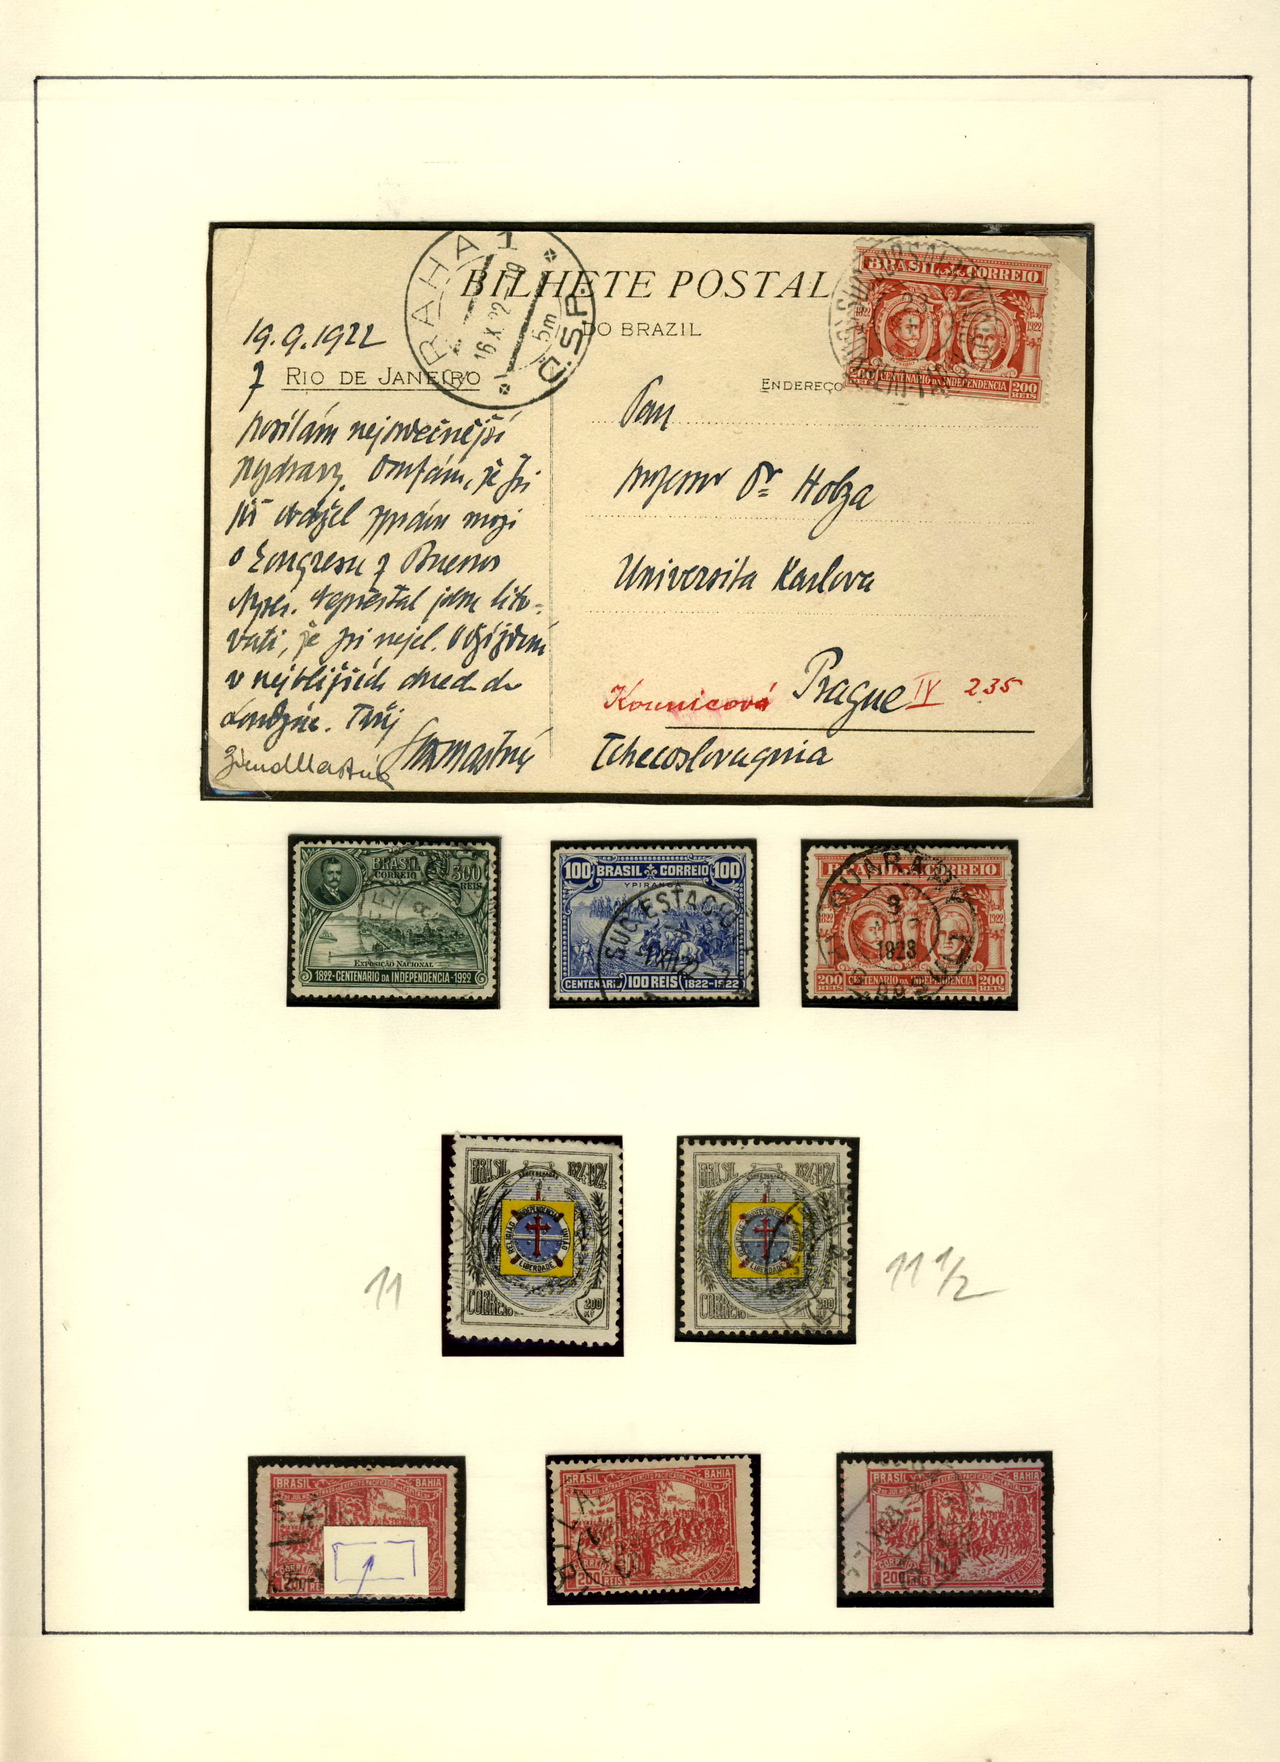 BILHETE POSTAL
DO BRAZIL
PRAHA 1
16.X.22
Č.S.P.
5m
19.9.1922
Z RIO DE JANEIRO
Posílám nejsrdečnější
pozdravy. Doufám, že Jsi
již obdržel zprávu moji
o kongresu z Buenos
Ayres. Nepřestal jsem lito-
vati, že Jsi nejel. Odjíždím
v nejbližších dnech do
Londýna. Tvůj
ENDEREÇO
Pan
professor Dr Holza
Universita Karlova
Kounicová Prague IV 235
Tchecoslovaquia
BRASIL CORREIO
1822 1922
200 CENTENARIO DA INDEPENDENCIA 200
REIS
BRASIL
CORREIO
300
REIS
EXPOSIÇÃO NACIONAL
1822-CENTENARIO DA INDEPENDENCIA-1922
100 BRASIL CORREIO 100
YPIRANGA
SUC. ESTAC
CENTENARIO 100 REIS 1822-1922
BRASIL CORREIO
1822 1922
3
1923
200 CENTENARIO DA INDEPENDENCIA 200
REIS REIS
BRASIL 1824-1924
CONFEDERAÇÃO
RELIGIÃO INDEPENDENCIA UNIÃO
LIBERDADE
CORREIO 200
RÉIS
11
BRASIL 1824-1924
RELIGIÃO INDEPENDENCIA UNIÃO
LIBERDADE
CORREIO 200
11 1/2
BRASIL BAHIA
CORREIO
200 REIS
1
BRASIL BAHIA
CORREIO
200 REIS
BRASIL BAHIA
CORREIO
200 REIS